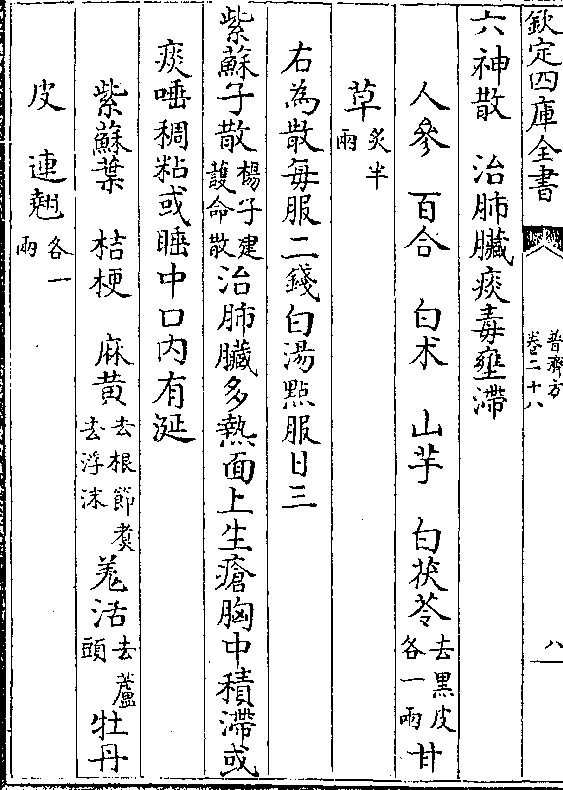 欽定四庫全書
普濟方
卷二十八
八
六神散 治肺臟痰毒壅滯
人參 百合 白术 山芋 白茯苓去黑皮各一兩 甘
草炙半兩
右為散每服二錢白湯點服日三
紫蘇子散楊子建護命散治肺臟多熱面上生瘡胸中積滯或
痰唾稠粘或睡中口内有涎
紫蘇葉 桔梗 麻黄去根節煑去浮沫 羗活去蘆頭 牡丹
皮 連翹各一兩